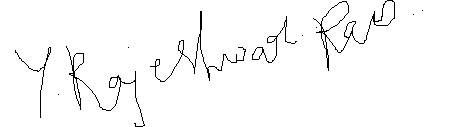 Y. Rajeshwar. Rao..